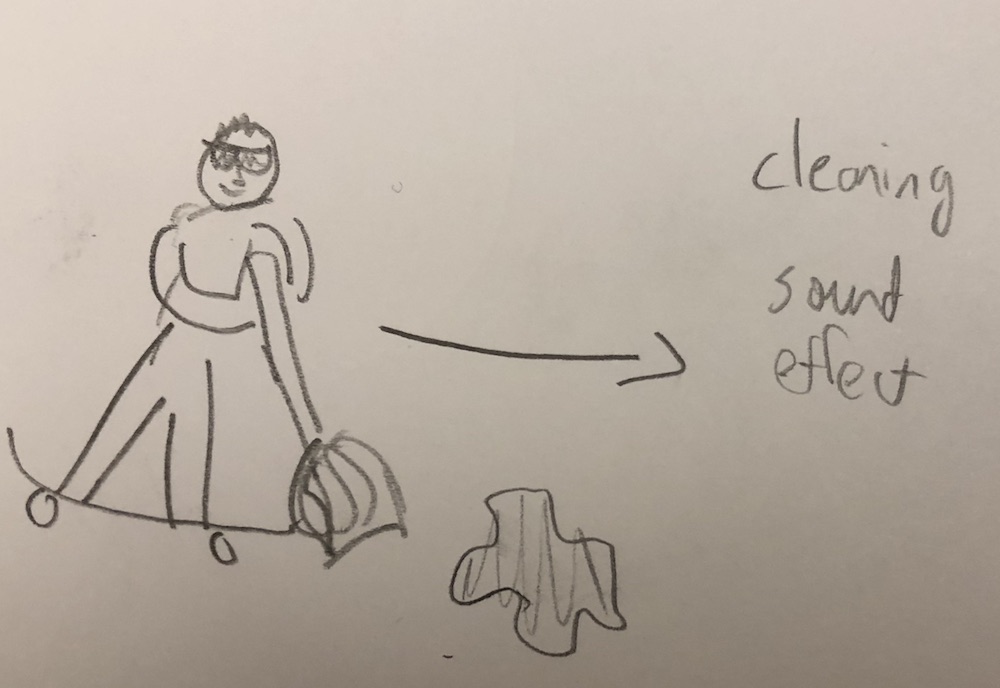 cleaning
sound
effect